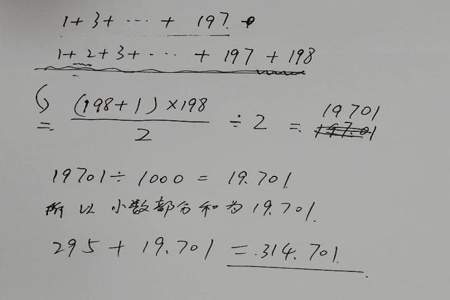 1+3+⋯+197
1+2+3+⋯+197+198
= (198+1)×198/2 ÷2 = 19701
19701÷1000=19.701
所以小数部分和为19.701
295+19.701=314.701